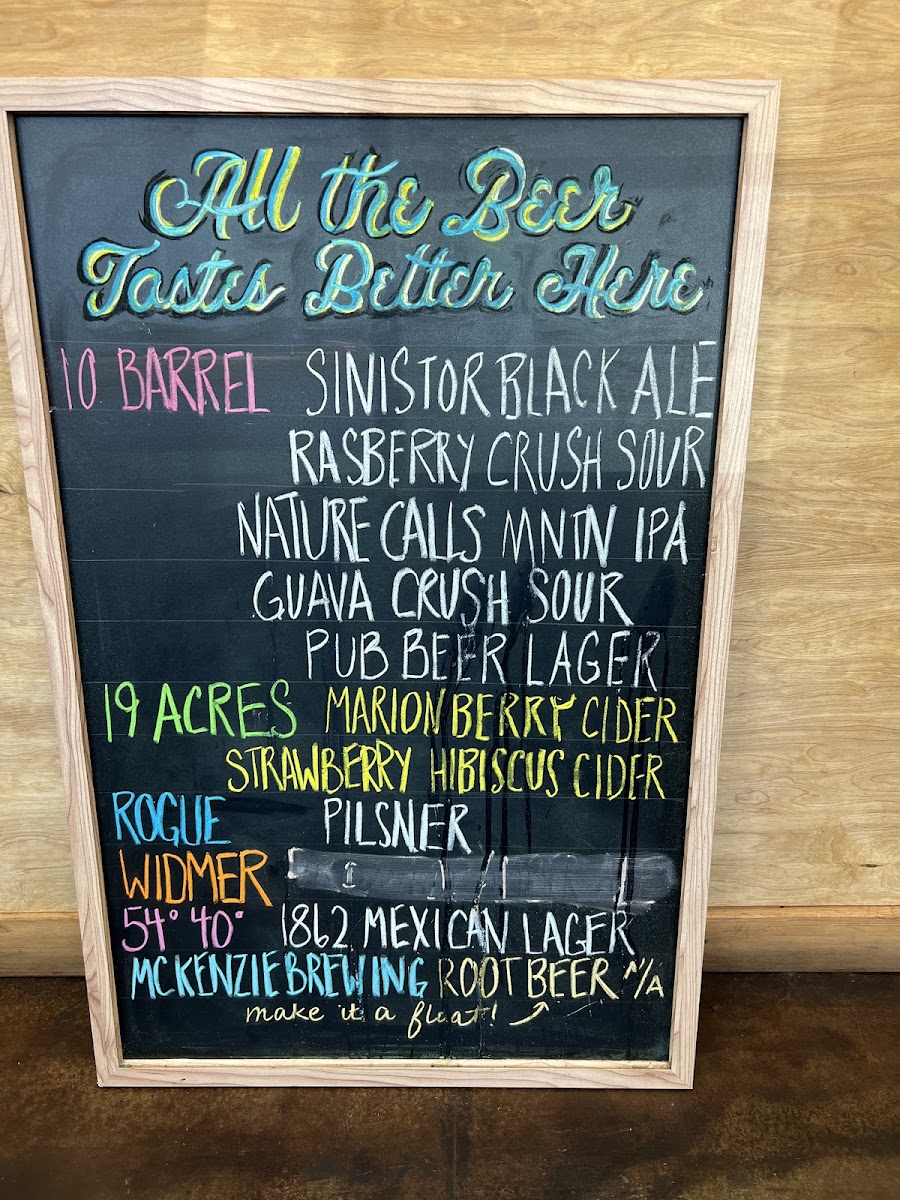 All the Beer
Tastes Better Here
10 BARREL SINISTOR BLACK ALE
RASBERRY CRUSH SOUR
NATURE CALLS MNTN IPA
GUAVA CRUSH SOUR
PUB BEER LAGER
19 ACRES MARION BERRY CIDER
STRAWBERRY HIBISCUS CIDER
ROGUE PILSNER
WIDMER
54° 40° 1862 MEXICAN LAGER
MCKENZIE BREWING ROOT BEER N/A
make it a float!